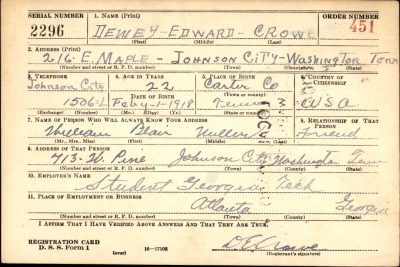 SERIAL NUMBER 1. NAME (Print) ORDER NUMBER
2296 DEWEY - EDWARD - CROWE 451
(First) (Middle) (Last)
2. ADDRESS (Print)
216 E. MAPLE - JOHNSON CITY - WASHINGTON TENN
(Number and street or R. F. D. number) (Town) (County) (State)
3. TELEPHONE 4. AGE IN YEARS 5. PLACE OF BIRTH 6. COUNTRY OF CITIZENSHIP
Johnson City 22 Carter Co
DATE OF BIRTH (Town or county)
1506-L Feby-1-1918 Tenn USA
(Exchange) (Number) (Mo.) (Day) (Yr.) (State or country)
7. NAME OF PERSON WHO WILL ALWAYS KNOW YOUR ADDRESS 8. RELATIONSHIP OF THAT PERSON
William Blair Miller Friend
(Mr., Mrs., Miss) (First) (Middle) (Last)
9. ADDRESS OF THAT PERSON
413-W. Pine Johnson City Washington Tenn
(Number and street or R. F. D. number) (Town) (County) (State)
10. EMPLOYER'S NAME
Student Georgia Tech
11. PLACE OF EMPLOYMENT OR BUSINESS
Atlanta Georgia
(Number and street or R. F. D. number) (Town) (County) (State)
I AFFIRM THAT I HAVE VERIFIED ABOVE ANSWERS AND THAT THEY ARE TRUE.
REGISTRATION CARD
D. S. S. Form 1 (over) 16—17105 (Registrant's signature)
D E Crowe